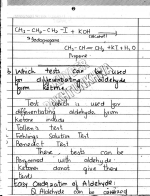 CH₃ - CH₂ - CH₂ - I + KOH
(alcohol)
CH₃ - CH = CH₂ + KI + H₂O
Propene
Which tests can be used
for differentiating aldehyde
form Ketone.
Test which is used for
differentiating aldehyde form
Ketone
Tollen's test
Fehling's Solution Test
Benedict Test
These tests can be
Performed with aldehyde
Ketones donot give these
tests
Easy Oxidization of Aldehyde:
Oxidization of Aldehyde